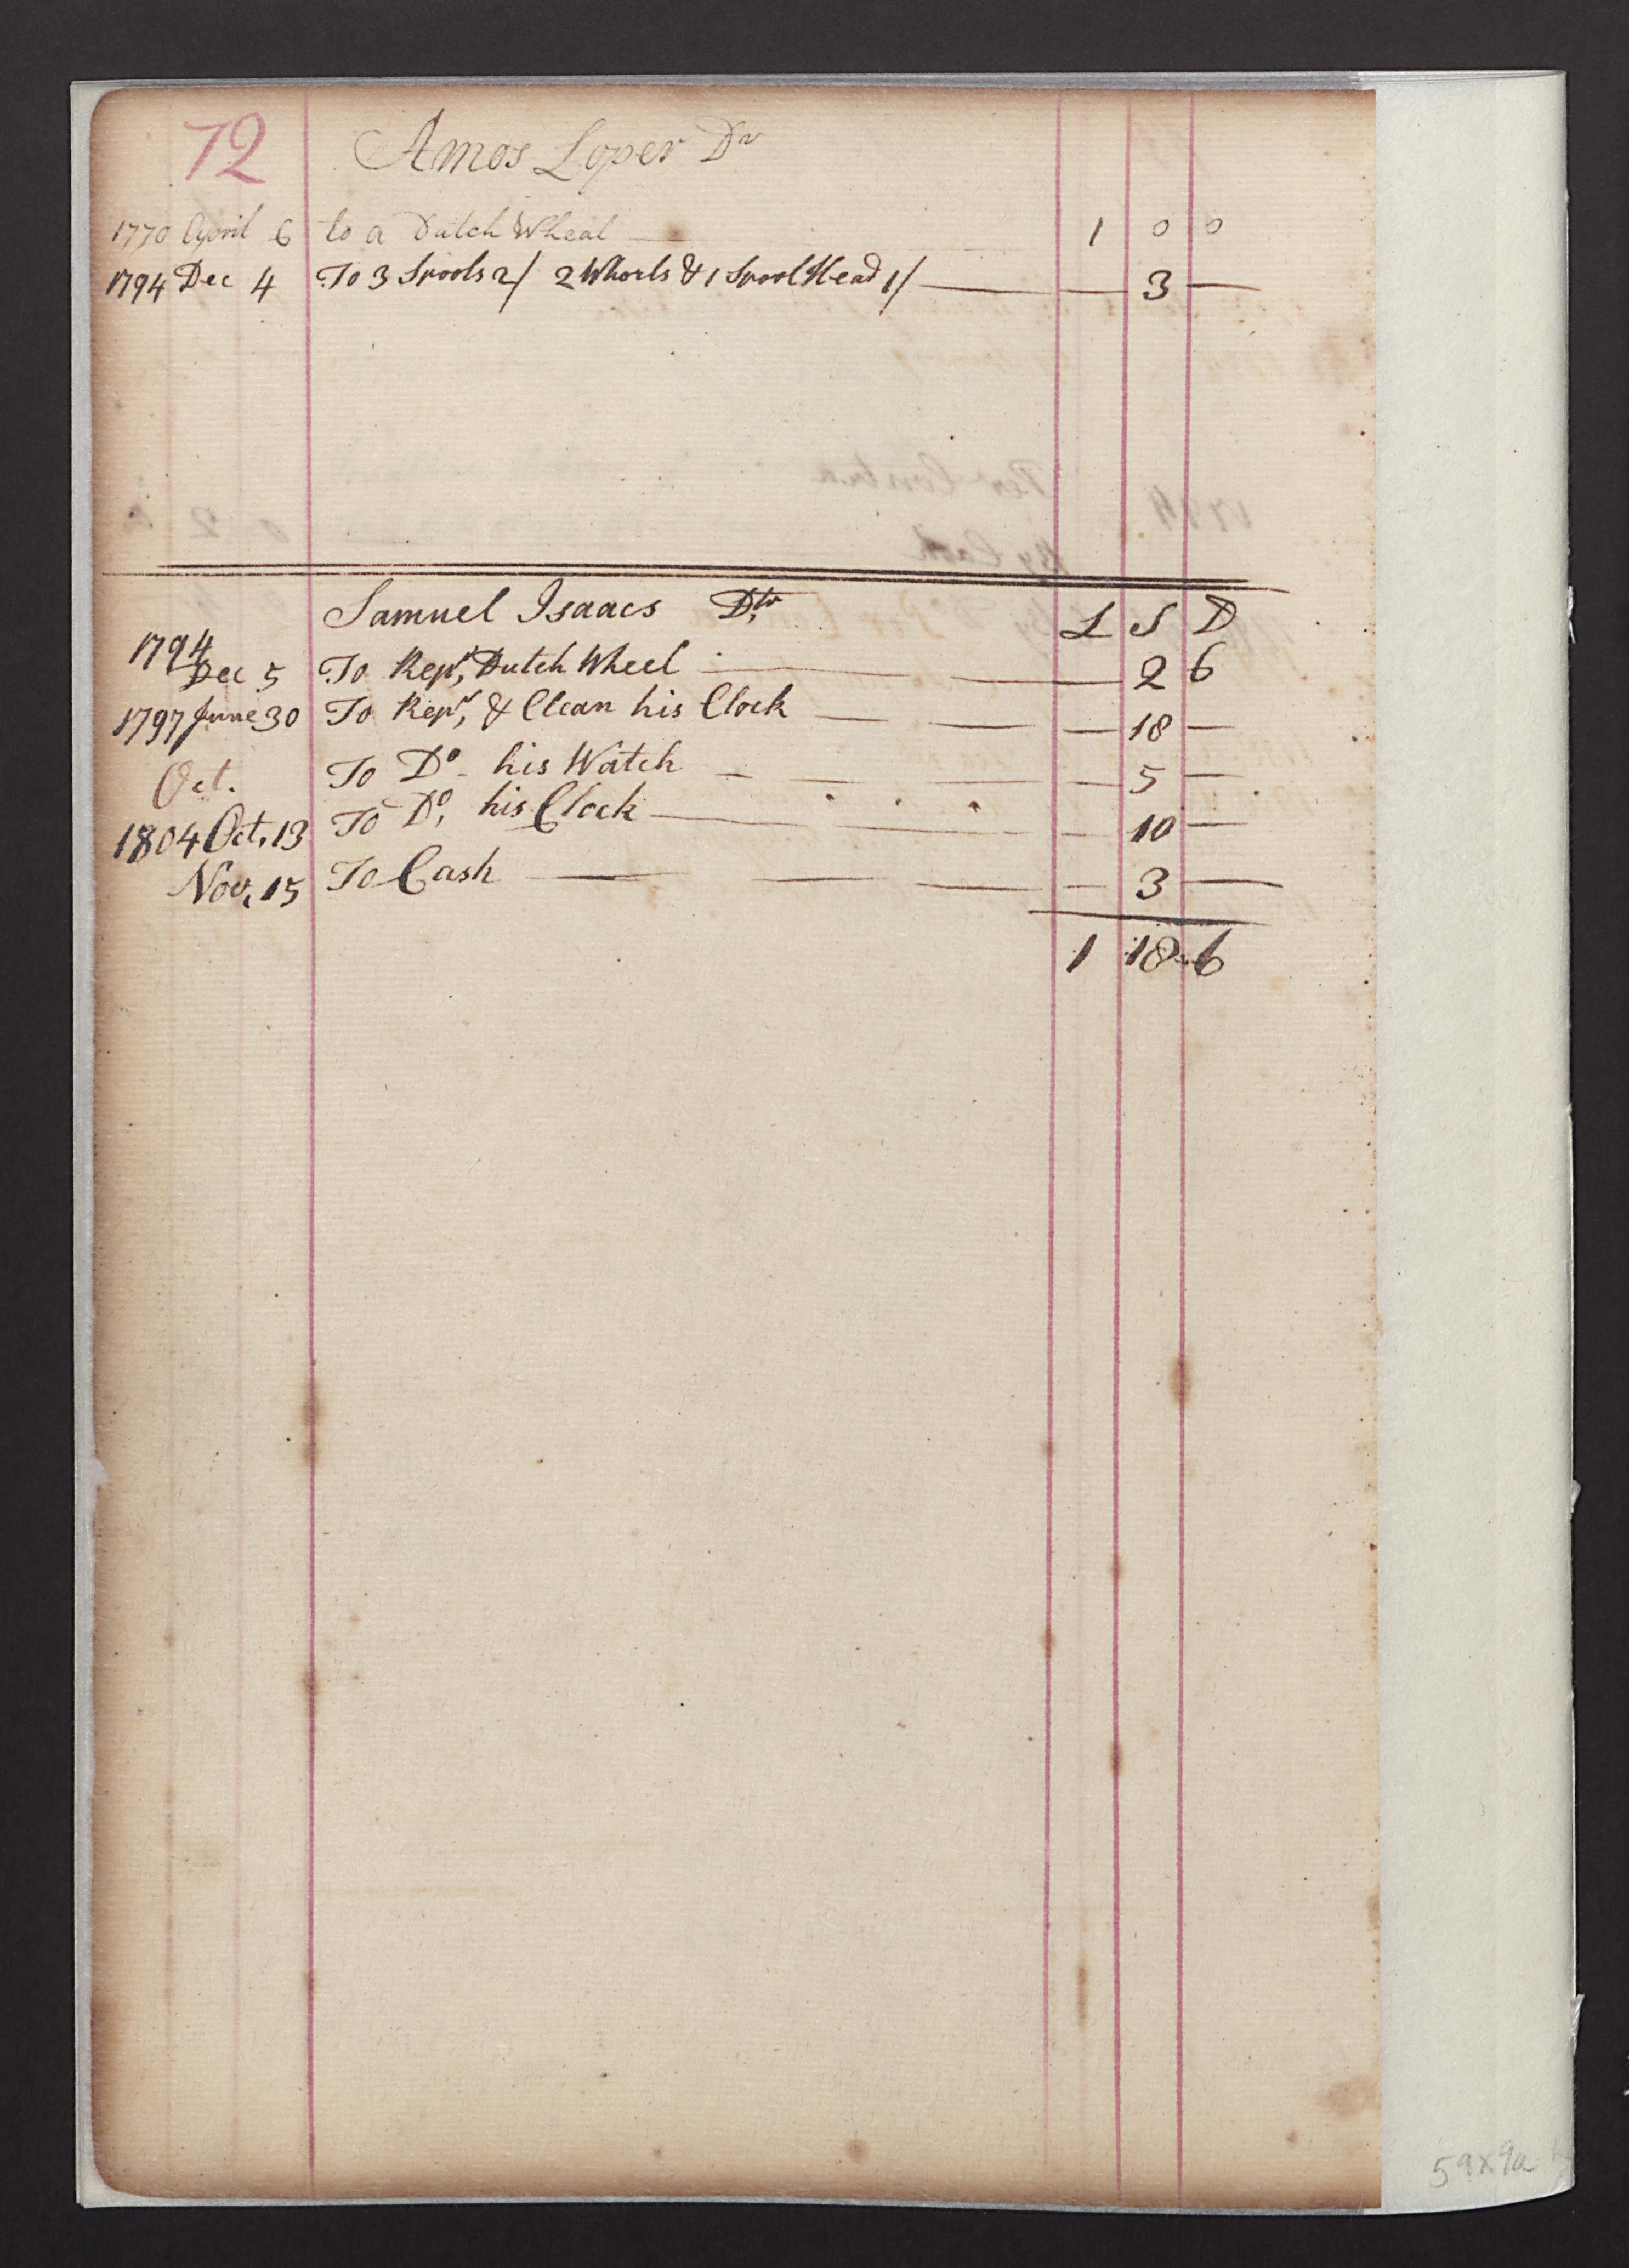 72 Amos Loper Dr
1770 April 6 to a Dutch Wheal 1 0 0
1794 Dec 4 To 3 Spools 2/ 2 Whorls & 1 Spool Head 1/ — 3 —
Samuel Isaacs Dtr L S D
1794
Dec 5 To Repr, Dutch Wheel — 2 6
1797 June 30 To Repr, & Clean his Clock — 18 —
Oct. To Do - his Watch — 5 —
1804 Oct. 13 To Do, his Clock — 10 —
Nov. 15 To Cash — 3 —
1 18 6
59x9a